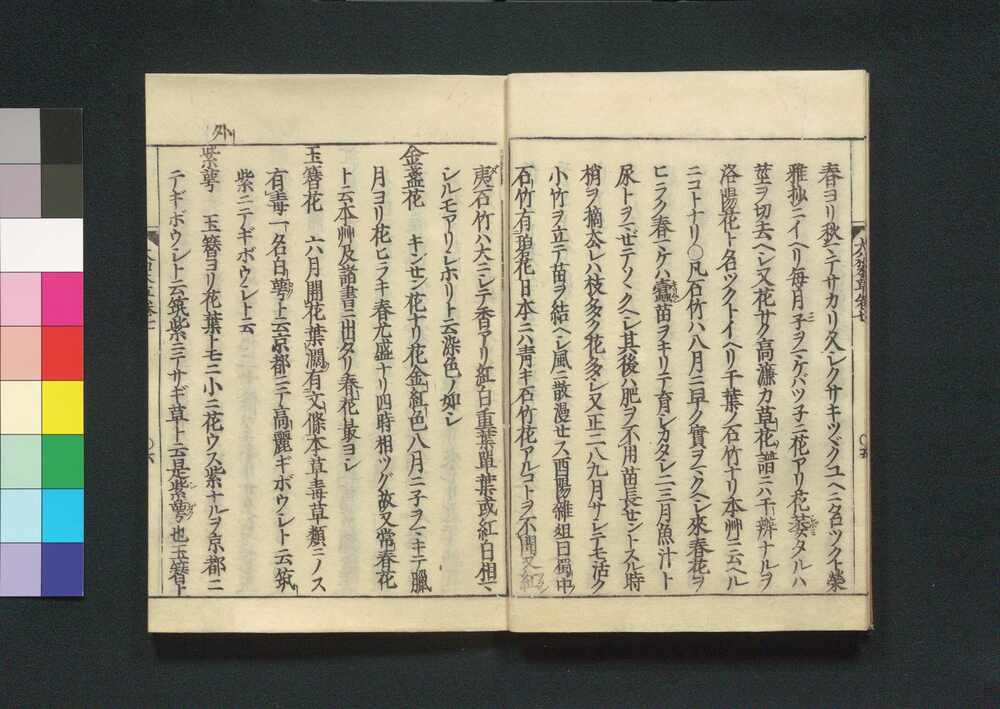 春ヨリ秋マテサカリ久シクサキツヾクユヘニ名ツクト榮
雅抄ニイヘリ毎月子ヲマケバツ子ニ花アリ花萎タルハ
莖ヲ切去ヘシ又花サク高濂カ草花譜ニハ千瓣ナルヲ
洛陽花ト名ツクトイヘリ千葉ノ石竹ナリ本艸ニ云ヘル
ニコトナリ〇凡石竹ハ八月ニ早ク實ヲマクヘシ來春花ヲ
ヒラク春マケハ蠧苗ヲキリテ育シカタシ二三月魚汁ト
尿トヲマゼテソヽクヘシ其後ハ肥ヲ不用苗長セントスル時
梢ヲ摘去レハ枝多ク花多シ又正二八九月サシテモ活ク
小竹ヲ立テ苗ヲ結ヘシ風ニ散漫セス酉陽雜俎曰蜀中
石竹有碧花日本ニハ青キ石竹花アルコトヲ不聞又紅
夷石竹ハ大ニシテ香アリ紅白重葉單葉或紅白相マ
シルモアリシホリト云染色ノ如シ
金盞花 キンセン花ナリ花金紅色八月ニ子ヲマキテ臘
月ヨリ花ヒラキ春尤盛ナリ四時相ツグ故又常春花
ト云本艸及諸書ニ出タリ春花最ヨシ
玉簪花 六月開花葉濶有文條本草毒草類ニノス
有毒一名白蕚ト云京都ニテ高麗ギボウシト云筑
紫ニテギボウシト云
外
紫蕚 玉簪ヨリ花葉トモニ小ニ花ウス紫ナルヲ京都ニ
テギボウシト云筑紫ニテサギ草ト云是紫蕚也玉簪ト